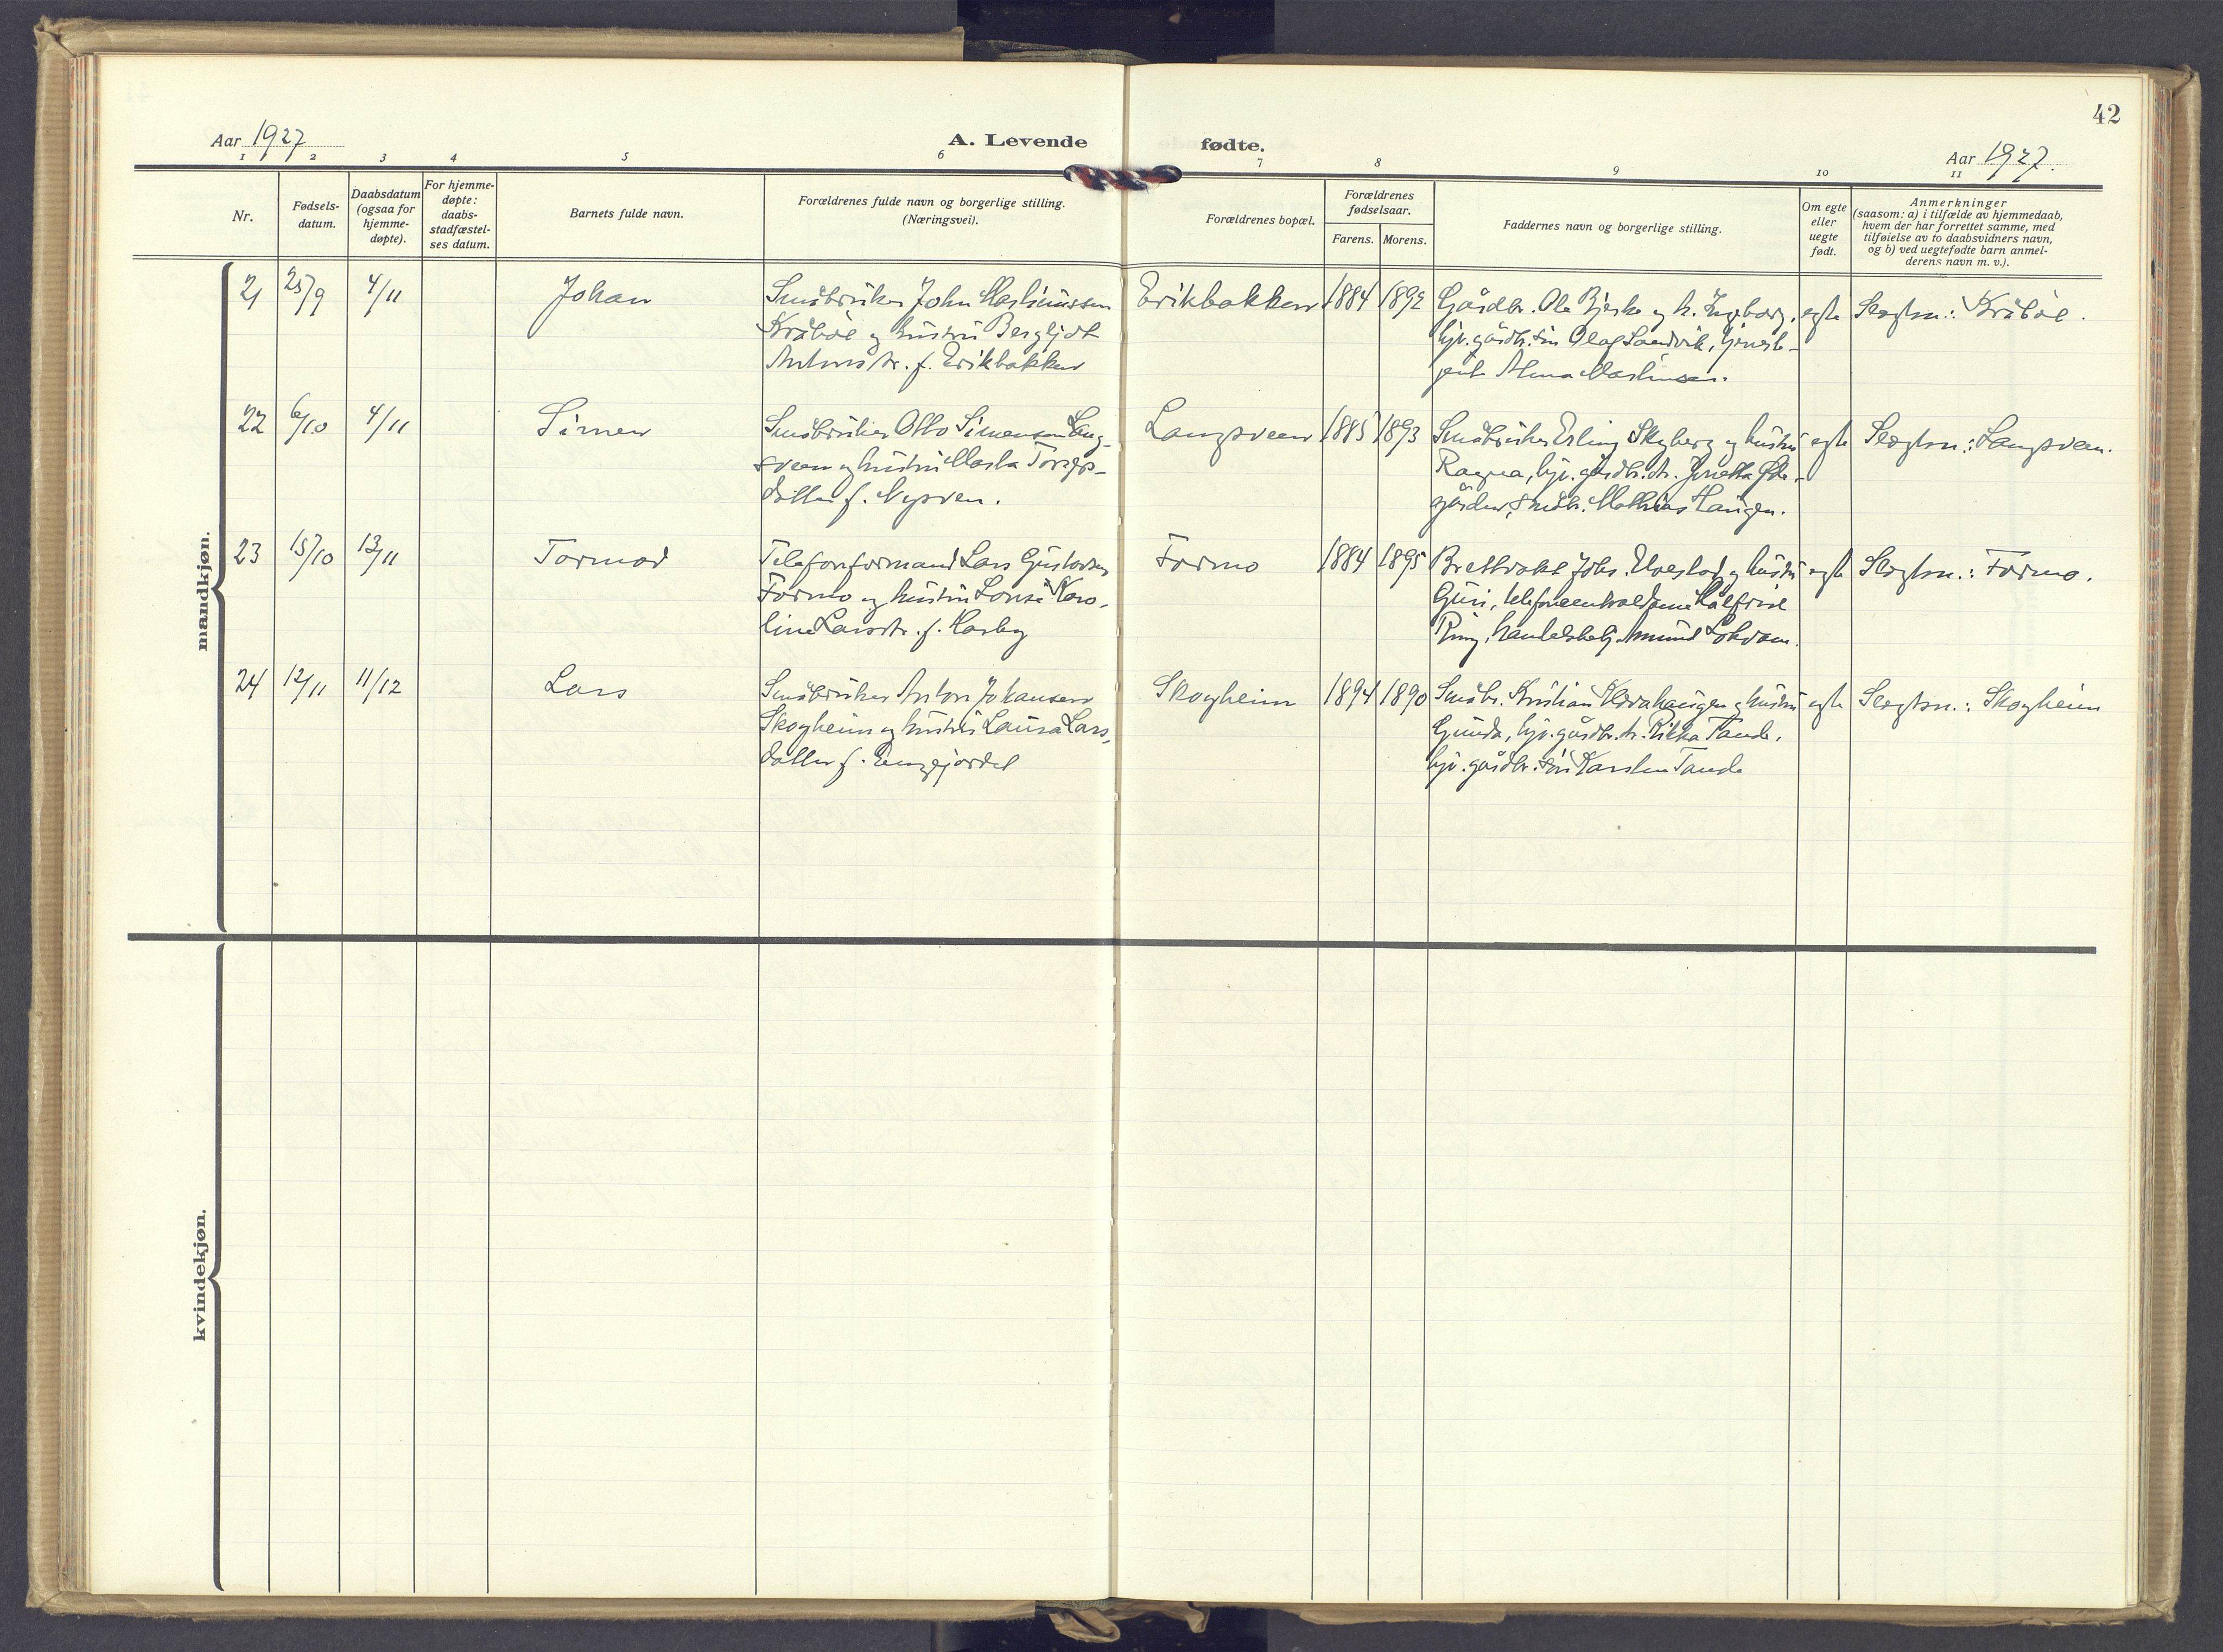 42
Aar 1927
A. Levende fødte.
Aar 1927.
1 2 3 4 5 6 7 8 9 10 11
Nr.
Fødsels-
datum.
Daabsdatum
(ogsaa for
hjemme-
døpte).
For hjemme-
døpte:
daabs-
stadfæstel-
ses datum.
Barnets fulde navn.
Forældrenes fulde navn og borgerlige stilling.
(Næringsvei).
Forældrenes bopæl.
Forældrenes
fødselsaar.
Farens. Morens.
Faddernes navn og borgerlige stilling.
Om egte
eller
uegte
født.
Anmerkninger
(saasom: a) i tilfælde av hjemmedaab,
hvem der har forrettet samme, med
tilføielse av to daabsvidners navn,
og b) ved uegtefødte barn anmel-
derens navn m. v.).
mandkjøn.
21 25/9 4/11 Johan
Småbruker John Martinussen
Kråbøl og hustru Bergljot
Antonsdtr. f. Erikbakken
Erikbakken 1884 1892
Gårdbr. Ole Bjerke og h. Ingborg,
hjv. gårdbr. søn Olaf Sandvik, tjeneste-
jente Alma Martinsen.
egte Slegtsn.: Kråbøl.
22 6/10 4/11 Simen
Småbruker Otto Simensen Lang-
sveen og hustru Marta Torgers-
datter f. Nysveen.
Langsveen 1885 1893
Småbruker Erling Skyberg og hustru
Ragna, hjv. gårdbr. dtr. Jonetta Øde-
gården, småbr. Mathias Haugen.
egte Slegtsn.: Langsveen.
23 15/10 13/11 Tormod
Telefonformand Lars Gustavsen
Formo og hustru Lovise Karo-
line Larsdtr. f. Harby
Formo 1884 1895
Brettvakt Johs. Elvestad og hustru
Guri, telefoncentraldame Halfrid
Ring, handelsbetj. Amund Lokvam.
egte Slegtsn.: Formo.
24 12/11 11/12 Lars
Småbruker Anton Johansen
Skogheim og hustru Laura Lars-
datter f. Engejordet
Skogheim 1894 1890
Småbr. Kristian Klevahaugen og hustru
Gunda, hjv. gårdbr. d. Rikka Tande,
hjv. gårdbr. søn Karsten Tande
egte Slegtsn.: Skogheim
kvindekjøn.